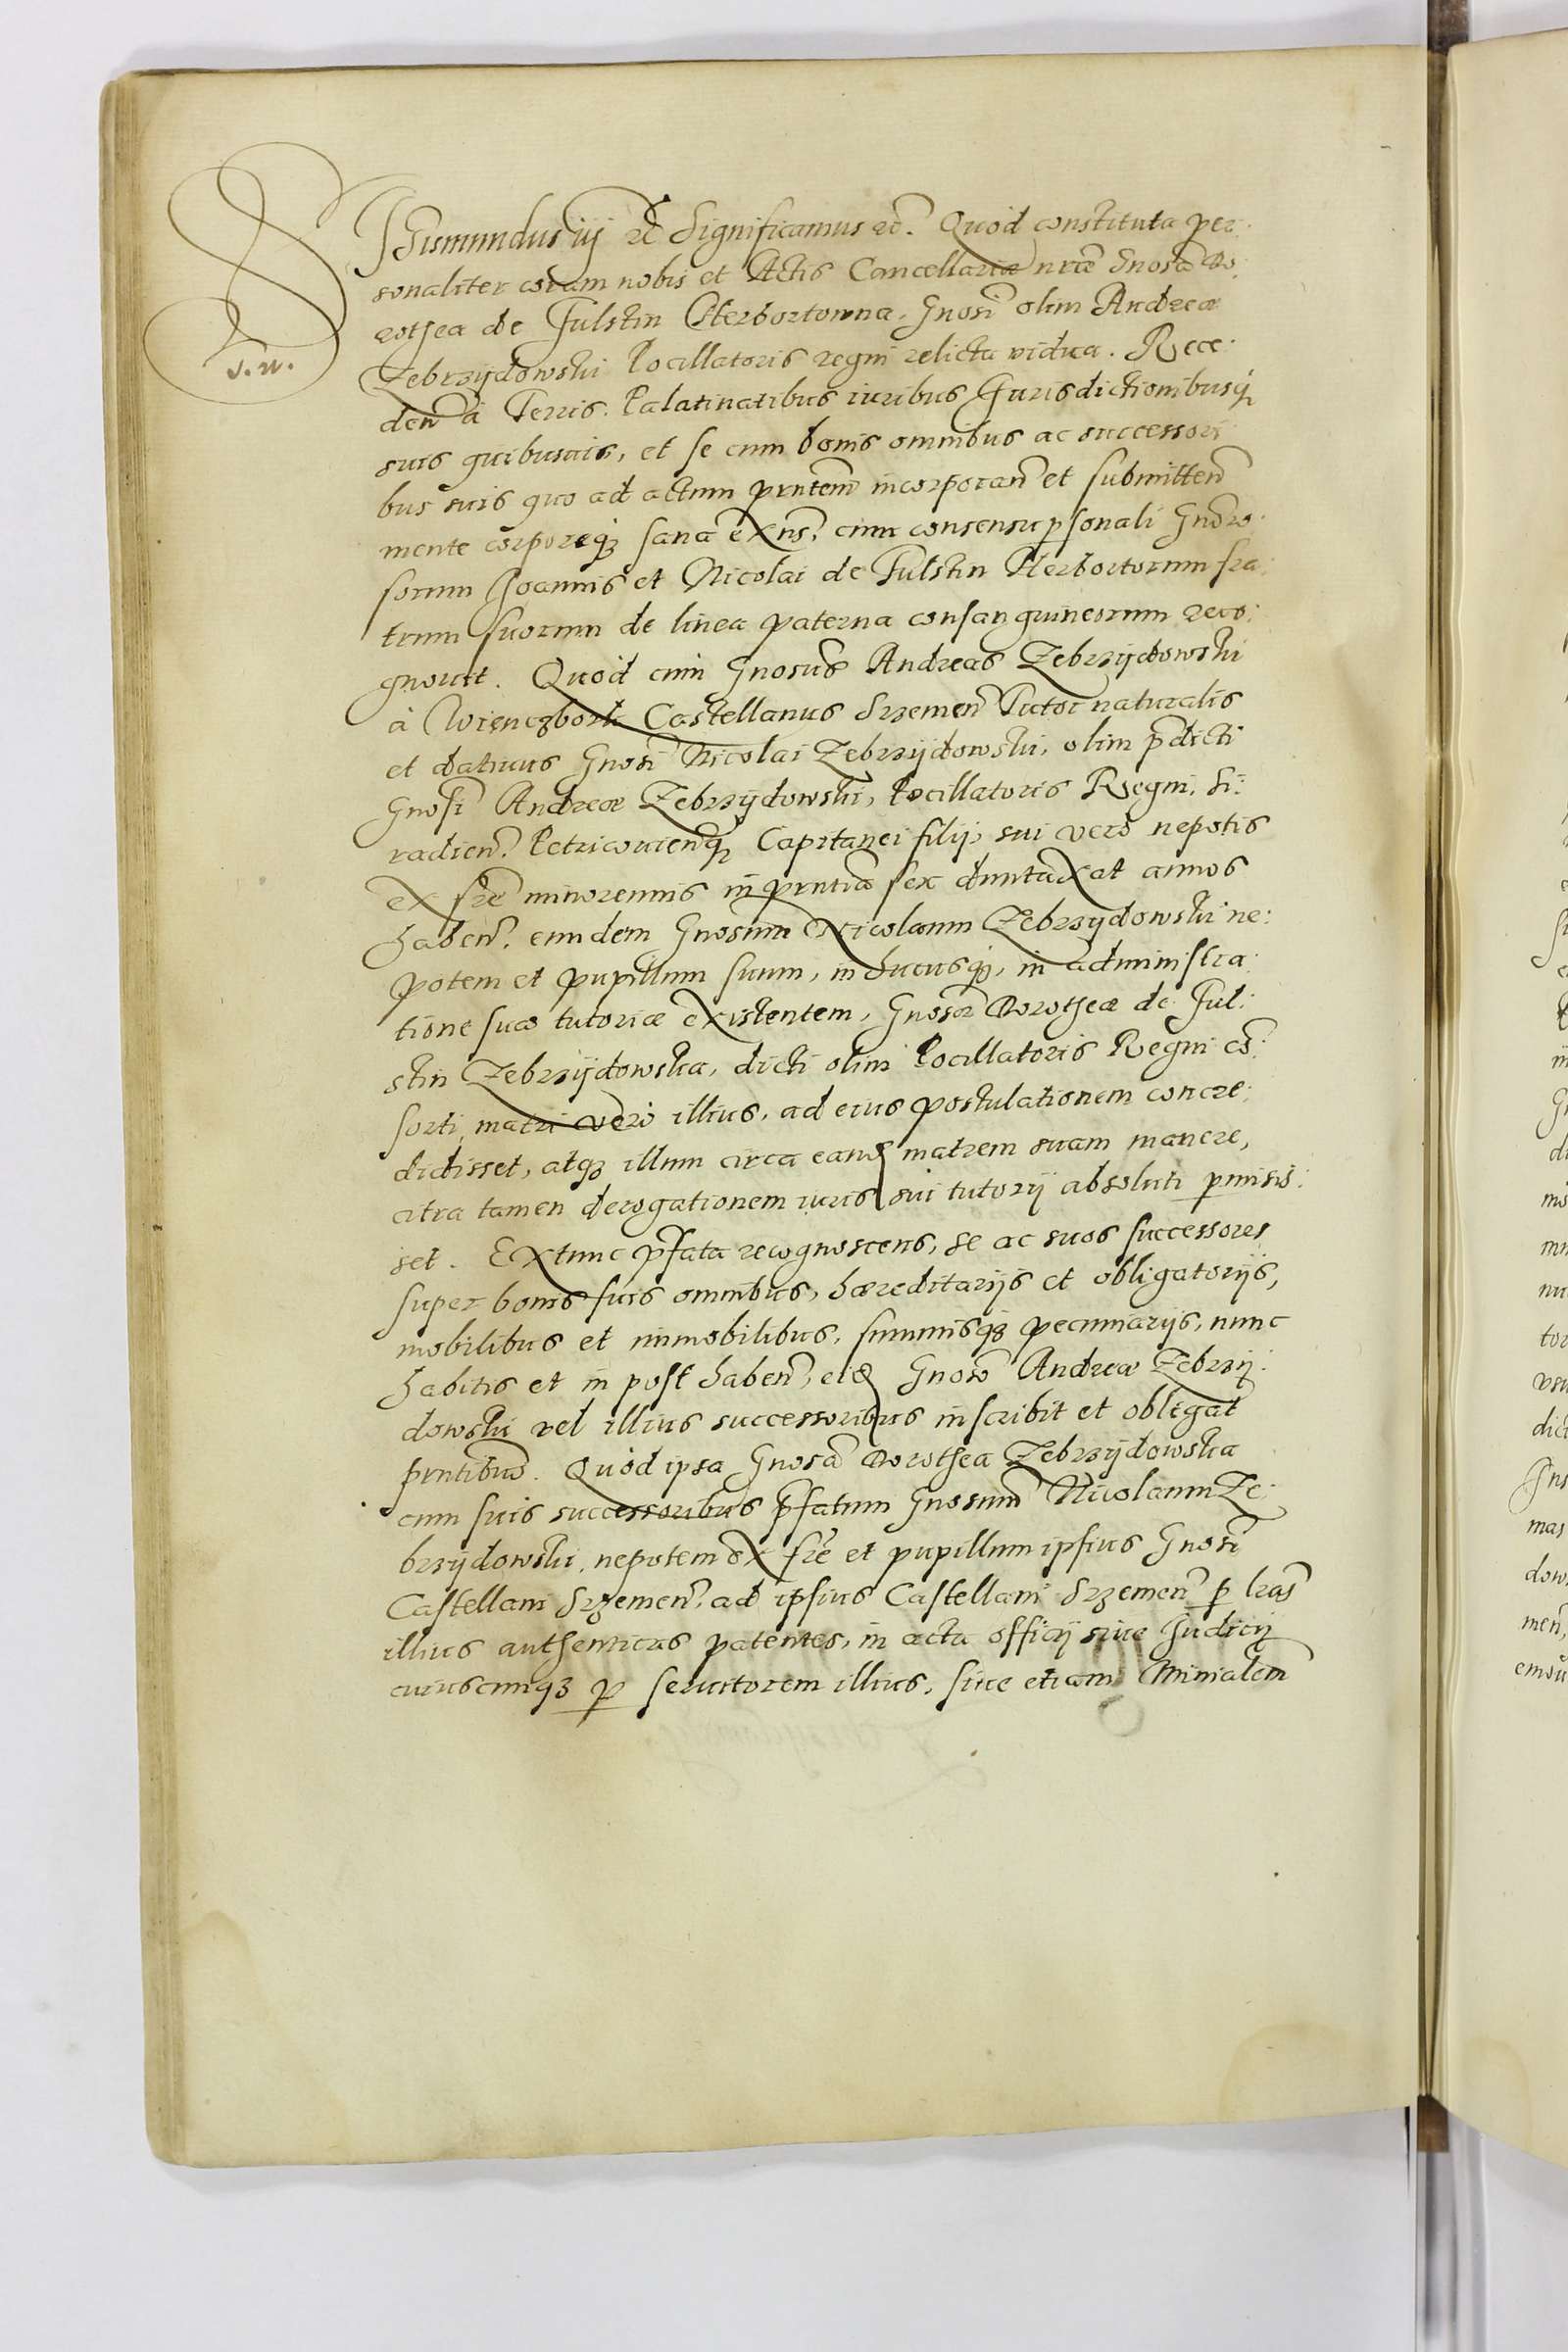 SIgismundus iij etc Significamus etc. Quòd constituta per:
sonaliter coram nobis et Actis Cancellariæ nrae Gnosa Do:
rothea de Fulstin Herbortowna, Gnosi olim Andreæ
Zebrzÿdowski Pocillatoris regni relicta vidua. Rece:
den̄ à Terris. Palatinatibus iuribus Jurisdictionibusq̃
suis quibusuis, et se cum bonis omnibus ac successori
bus suis quo ad actum prntem incorporan̄ et submitten̄
mente corporeq3 sana exns. cum consensu psonali Gnoro:
sorum Joannis et Nicolai de Fulstin Herbortorum fra:
trum suorum de linea paterna consanguineorum reco:
gnouit. Quòd cum Gnosus Andreas Zebrzÿdowski
à Wiencgbork Castellanus Srzemen̄ Tutor naturalis
et datiuus Gnosi Nicolai Zebrzÿdowski, olim p̄dicti
Gnosi Andreæ Zebrzÿdowski, Pocillatoris Regni, Si:
radien̄. Petricouienq̃ Capitanei filij, sui verò nepotis
ex fre minorennis in prntia sex duntaxat annos
haben̄. eundem Gnosum Nicolaum Zebrzÿdowski ne:
potem et pupillum suum, in hucusq3, in administra:
tione sua tutoriæ existentem, Gnosæ Dorotheæ de Ful:
stin Zebrzÿdowska, dicti olim Pocillatoris Regni cō:
sorti, matri verò illius, ad eius postulationem concre:
didisset, atq3 illum circa eand matrem suam manere,
citra tamen derogationem iuris sui tutorÿ absoluti pmisis:
set. Extunc p̄fata recognoscens, se ac suos successores
super bonis suis omnibus, hæreditarijs et obligatorijs,
mobilibus et immobilibus, summisq3 pecuniarijs, nunc
habitis et in post haben̄, eid Gnoso Andreæ Zebrzÿ:
dowski vel illius successoribus inscribit et obligat
prntibus. Quòd ipsa Gnosa Dorothea Zebrzÿdowska
cum suis successoribus p̄fatum Gnosum Nicolaum Ze:
brzÿdowski, nepotem ex fre et pupillum ipsius Gnosi
Castellani Srzemen̄, ad ipsius Castellani Srzemen̄ p lras
illius authenticas patentes, in acta officij siue Judicij
cuiuscunq3 p seruitorem illius, siue etiam Minialem